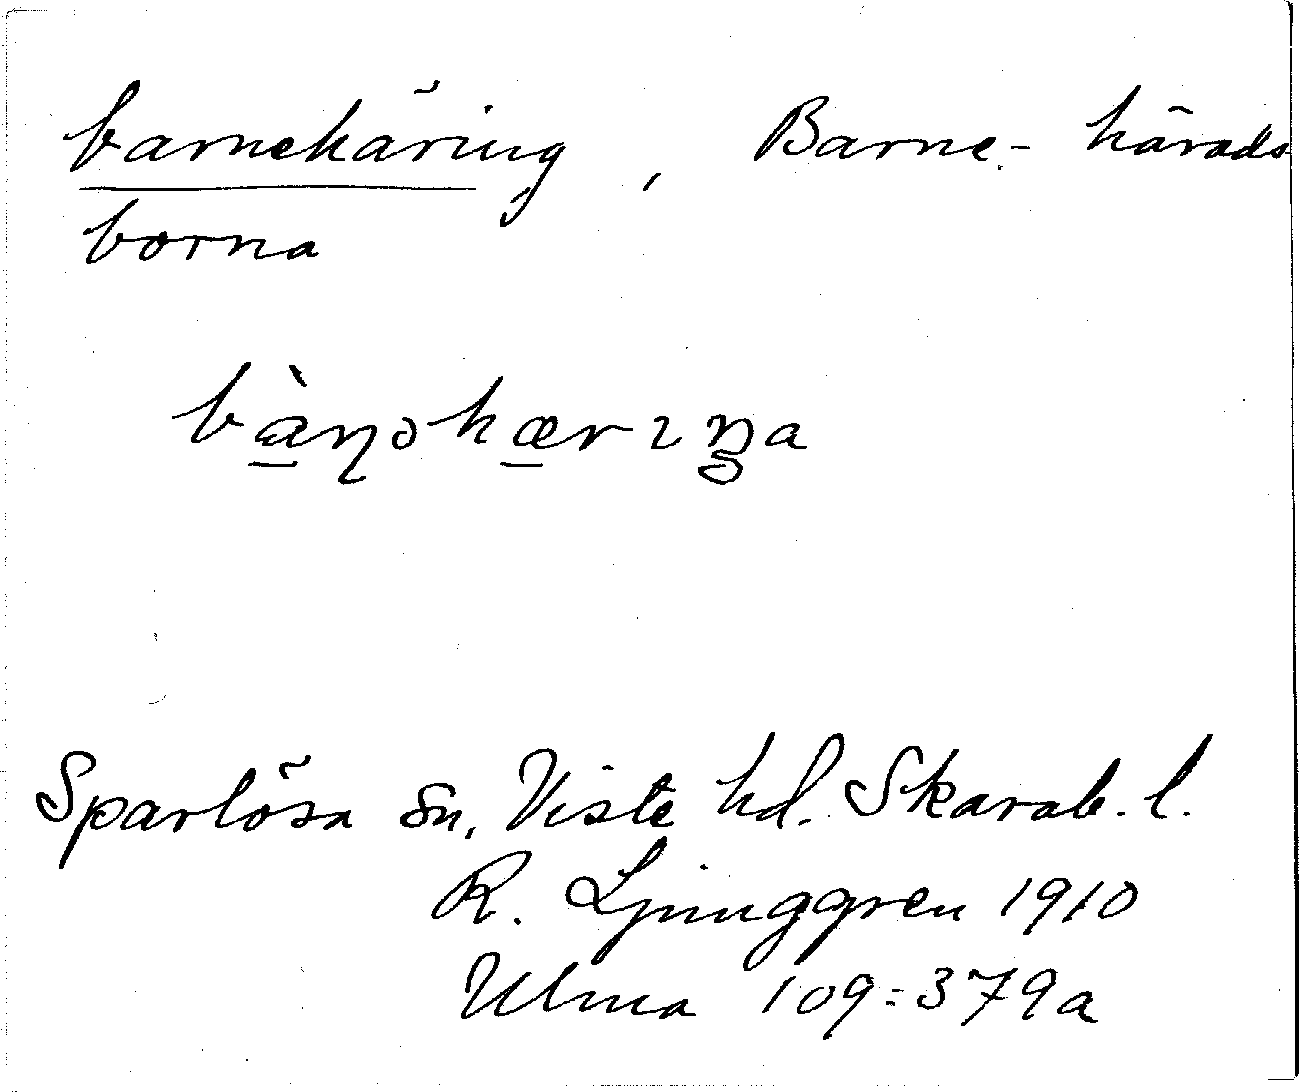 barnehäring, Barne-härads
borna
bàꞃəhærıŋa
Sparlösa sn, Viste hd. Skarab. l.
R. Ljunggren 1910
Ulma 109:379a